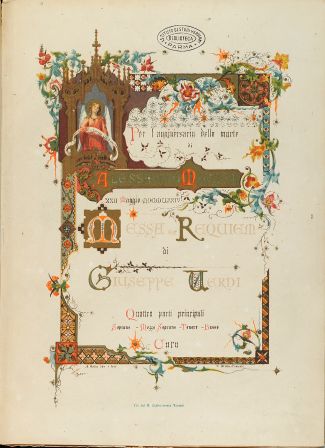 BIBLIOTECA
PARMA
Per l'anniversario della morte
di
XXII Maggio MDCCCLXXIV
MESSA DA REQUIEM
di
GIUSEPPE VERDI
Quattro parti principali
Soprano - Mezzo Soprano - Tenore - Basso
Coro